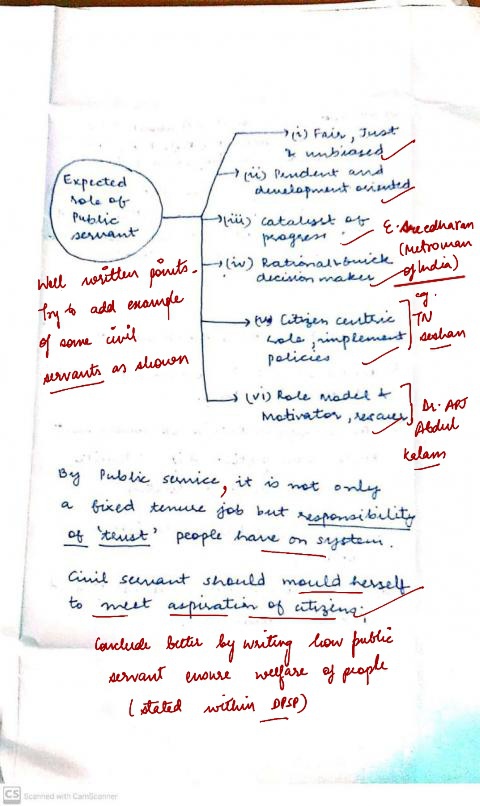 Expected
role of
Public
servant
(i) Fair, Just
& unbiased
(ii) Prudent and
development oriented
(iii) Catalyst of
progress
(iv) Rational & quick
decision maker
(v) Citizen centric
role, implement
policies
(vi) Role model &
Motivator, rescuer
E. Sreedharan
(Metroman
of India)
eg.
TN
seshan
Dr. APJ
Abdul
Kalam
Well written points.
Try to add example
of some civil
servants as shown
By Public service, it is not only
a fixed tenure job but responsibility
of 'trust' people have on system.
Civil servant should mould herself
to meet aspiration of citizens.
Conclude better by writing how public
servant ensure welfare of people
(stated within DPSP)
CS Scanned with CamScanner